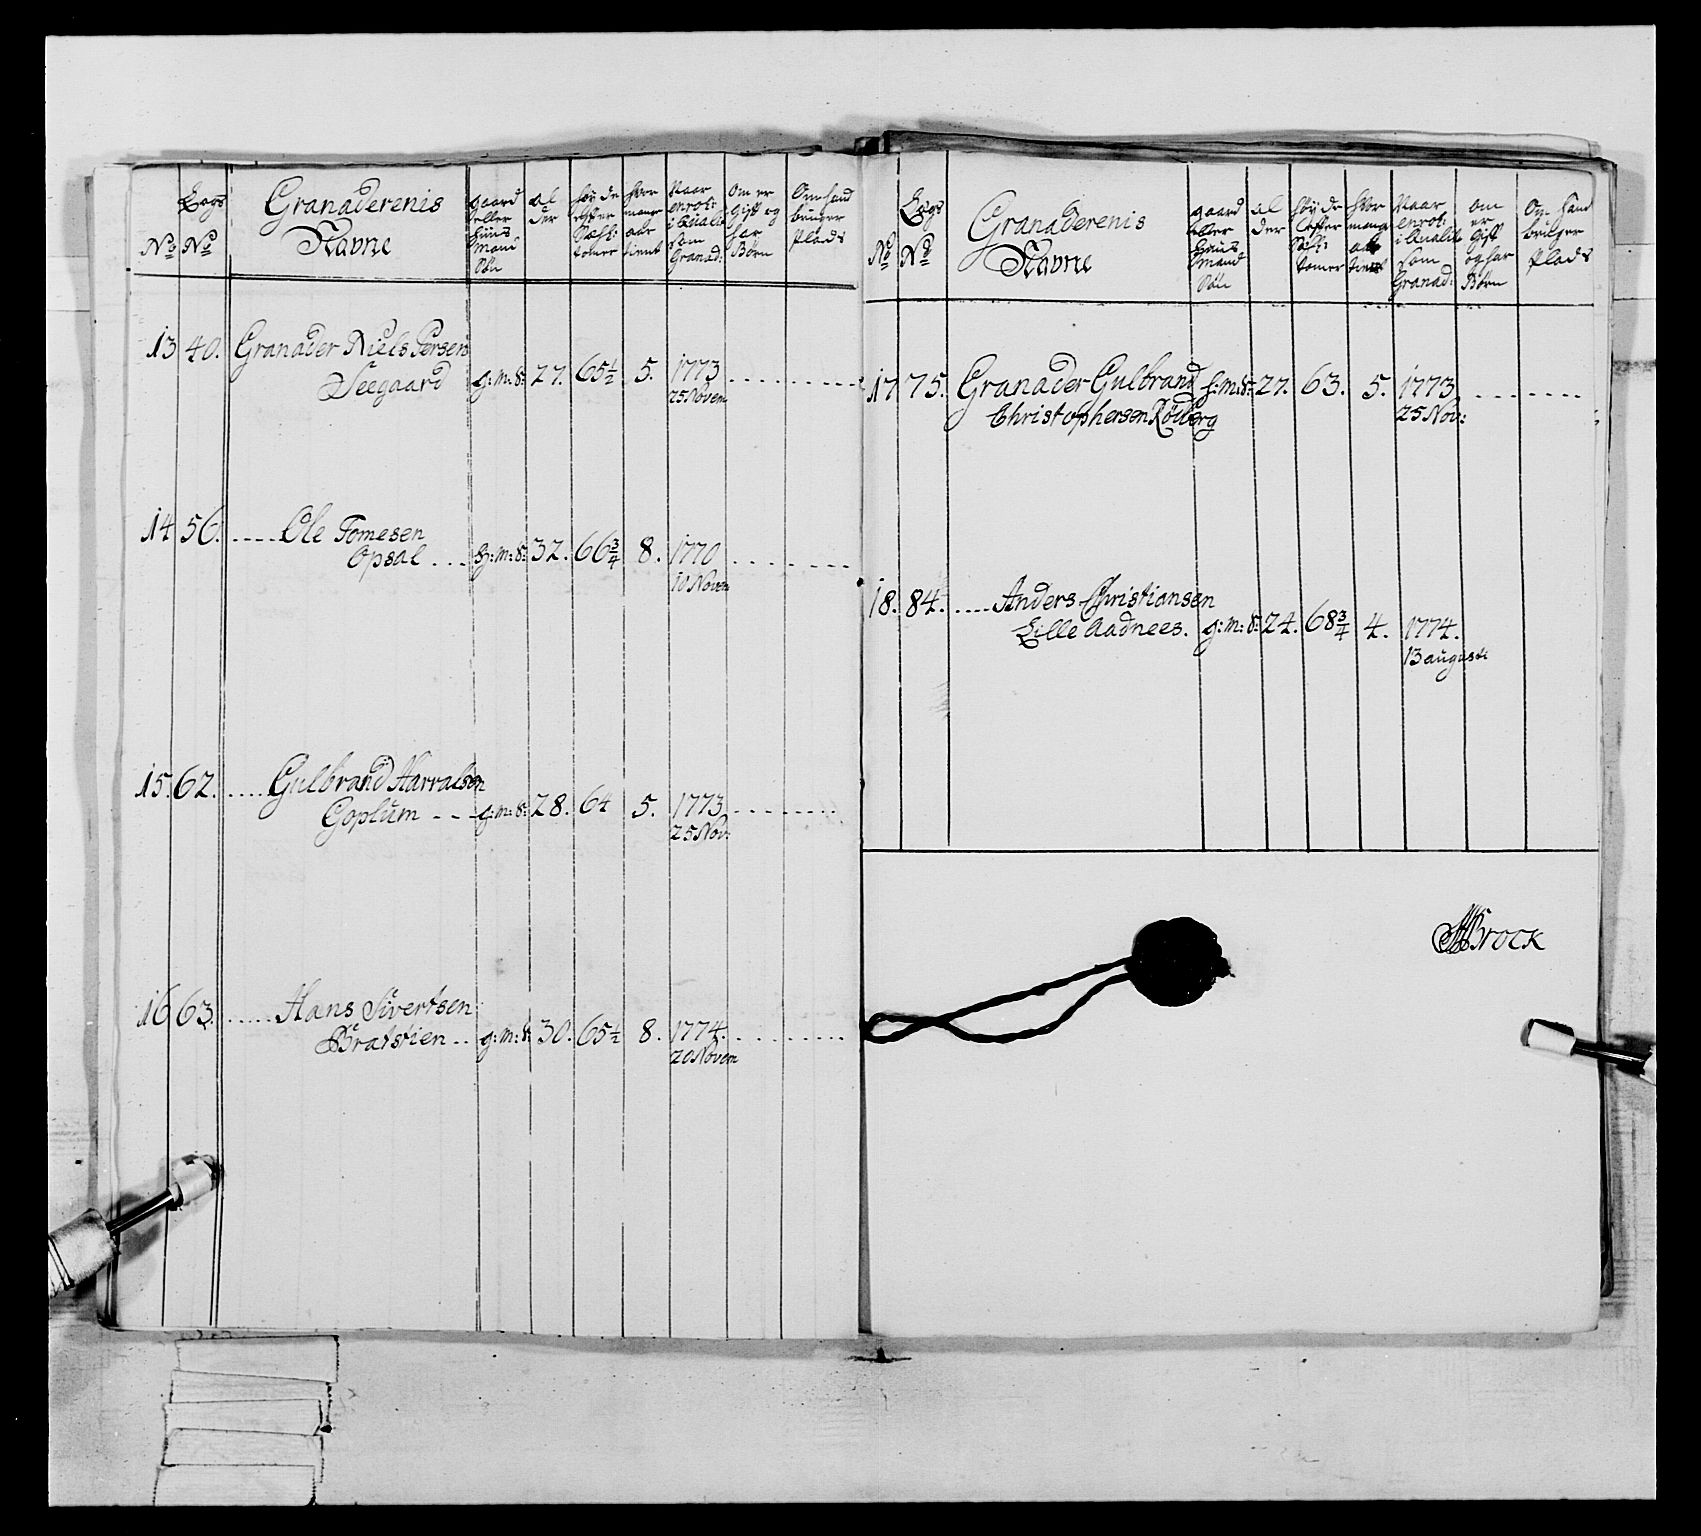 No
Lægs No
Granaderenis Navne
gaard eller huus Mans Søn
al der
høyde efter Sæls: tomer
hvor mange aar tient
Naar enrol: i Qualit: som Granad:
Om er Gift og har Børn
Om hand bruger Plads
13 40. Granader Niels Persen
Seegaard g: m: s: 27. 65½ 5. 1773
25 Novem
14 56. Ole Tomesen
Opsal g: m: s: 32. 66¾ 8. 1770
10 Novem
15. 62. Gulbrand Harralsen
Goplum g: m: s: 28. 64 5. 1773
25 Nov:
16 63. Hans Sivertsen
Bratstien g: m: s: 30. 65½ 8. 1774.
20 Novem
No
Lægs No
Granaderenis Navne
gaard eller huus mand Søn
al der
høyde efter Sæls: tomer
hvor mang aar tient
Naar enrol: i Qualit som Granad:
om er Gift og har Børn
Om hand bruger Plads
17 75. Granader Gulbrand h: m: s: 27. 63. 5. 1773
Christophersen Rødberg 25 Nov:
18. 84. Anders Christiansen
Lille Aadnees. g: m: s: 24. 68¾ 4. 1774.
13 augusti
Brock